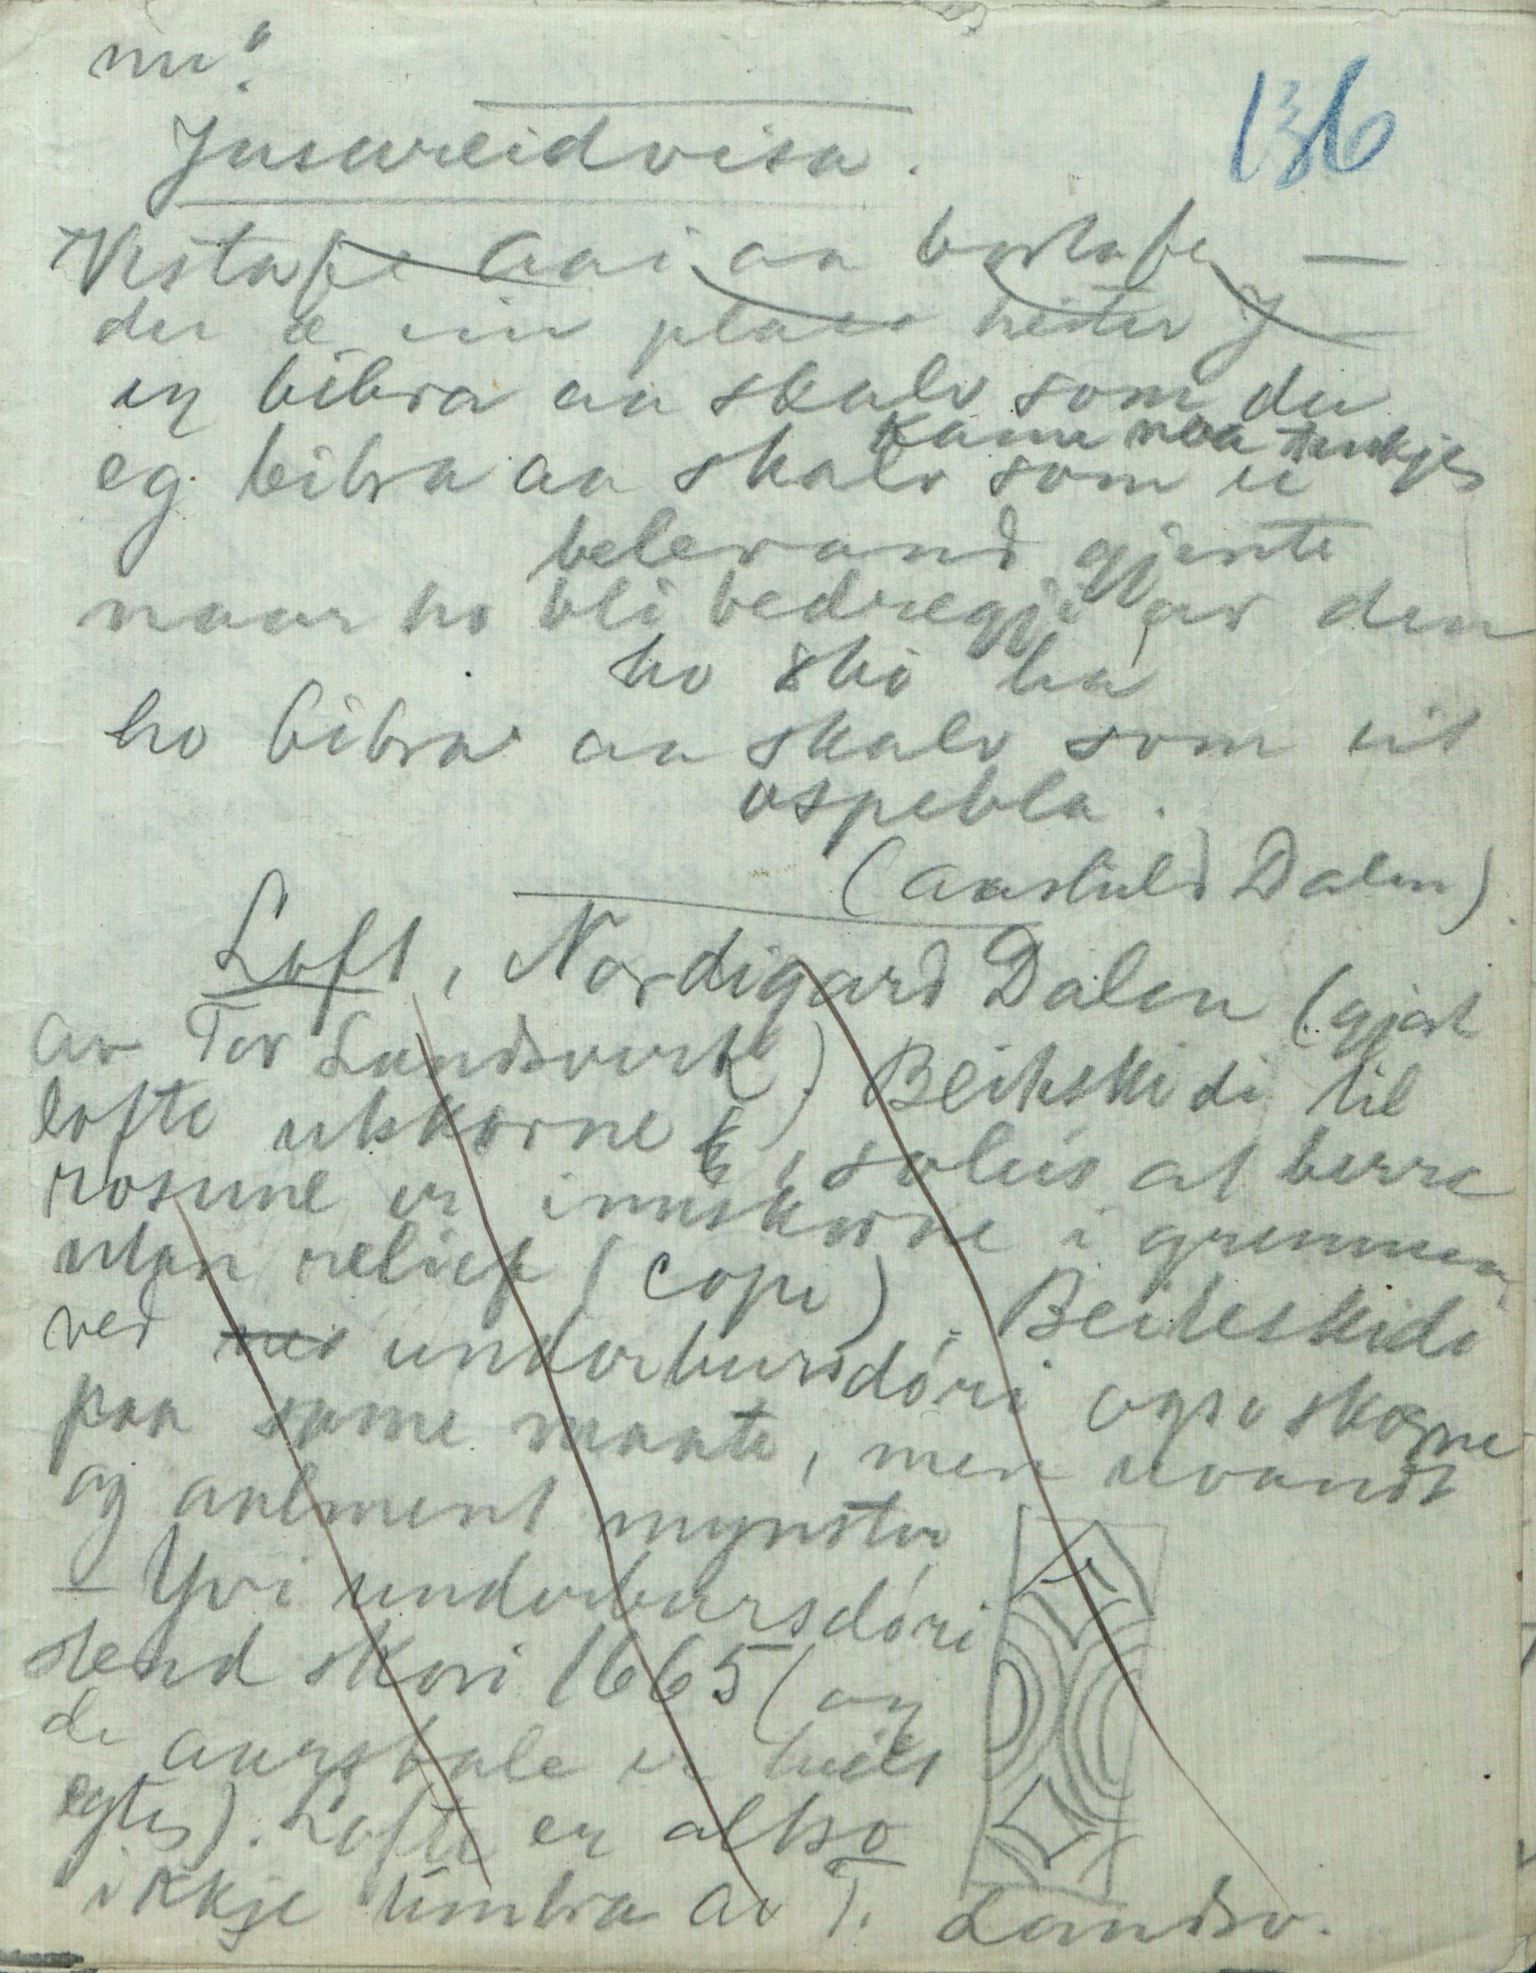 nu?
136
Jusureidvisa.
Vestafe Aai aa bortafe —
der æ ein plass heiter J —
eg bibra aa skalv som du
kann noa tenkjes
eg bibra aa skalv som ei
belerand gjente
naar ho bli bedregji av den
ho sko ha
ho bibra aa skalv som eit
ospebla.
(Aasluld Dalen)
Loft, Nordigard Dalen (gjort
av Tor Landsverk). Beitskidi til
lofte utskorne, soleis at berre
rosune er innskorne i grunnen
utan relief (copi). Beiteskidi
ved underbursdóri ogso skorne
paa same maate, men uvandt
og aalment mynster
— Yvi underbursdóri
stend skori 1665 (og
de aarstale er heilt
egte). Lofte er altso
ikkje timbra av T. Landsv.